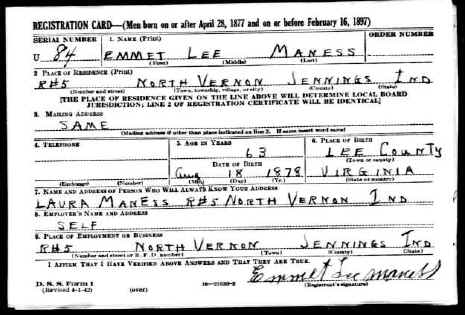 REGISTRATION CARD—(Men born on or after April 28, 1877 and on or before February 16, 1897)
SERIAL NUMBER 1. NAME (Print) ORDER NUMBER
U 84 EMMET LEE MANESS
(First) (Middle) (Last)
2. PLACE OF RESIDENCE (Print)
R#5 NORTH VERNON JENNINGS IND
(Number and street) (Town, township, village, or city) (County) (State)
[THE PLACE OF RESIDENCE GIVEN ON THE LINE ABOVE WILL DETERMINE LOCAL BOARD
JURISDICTION; LINE 2 OF REGISTRATION CERTIFICATE WILL BE IDENTICAL]
3. MAILING ADDRESS
SAME
[Mailing address if other than place indicated on line 2. If same insert word same]
4. TELEPHONE 5. AGE IN YEARS 6. PLACE OF BIRTH
63 LEE COUNTY
DATE OF BIRTH (Town or county)
Aug 18 1878 VIRGINIA
(Exchange) (Number) (Mo.) (Day) (Yr.) (State or country)
7. NAME AND ADDRESS OF PERSON WHO WILL ALWAYS KNOW YOUR ADDRESS
LAURA MANESS R#5 NORTH VERNON IND
8. EMPLOYER'S NAME AND ADDRESS
SELF
9. PLACE OF EMPLOYMENT OR BUSINESS
R#5 NORTH VERNON JENNINGS IND
(Number and street or R. F. D. number) (Town) (County) (State)
I AFFIRM THAT I HAVE VERIFIED ABOVE ANSWERS AND THAT THEY ARE TRUE.
Emmet Lee Maness
D. S. S. Form 1 (Registrant's signature)
(Revised 4-1-42) (over)